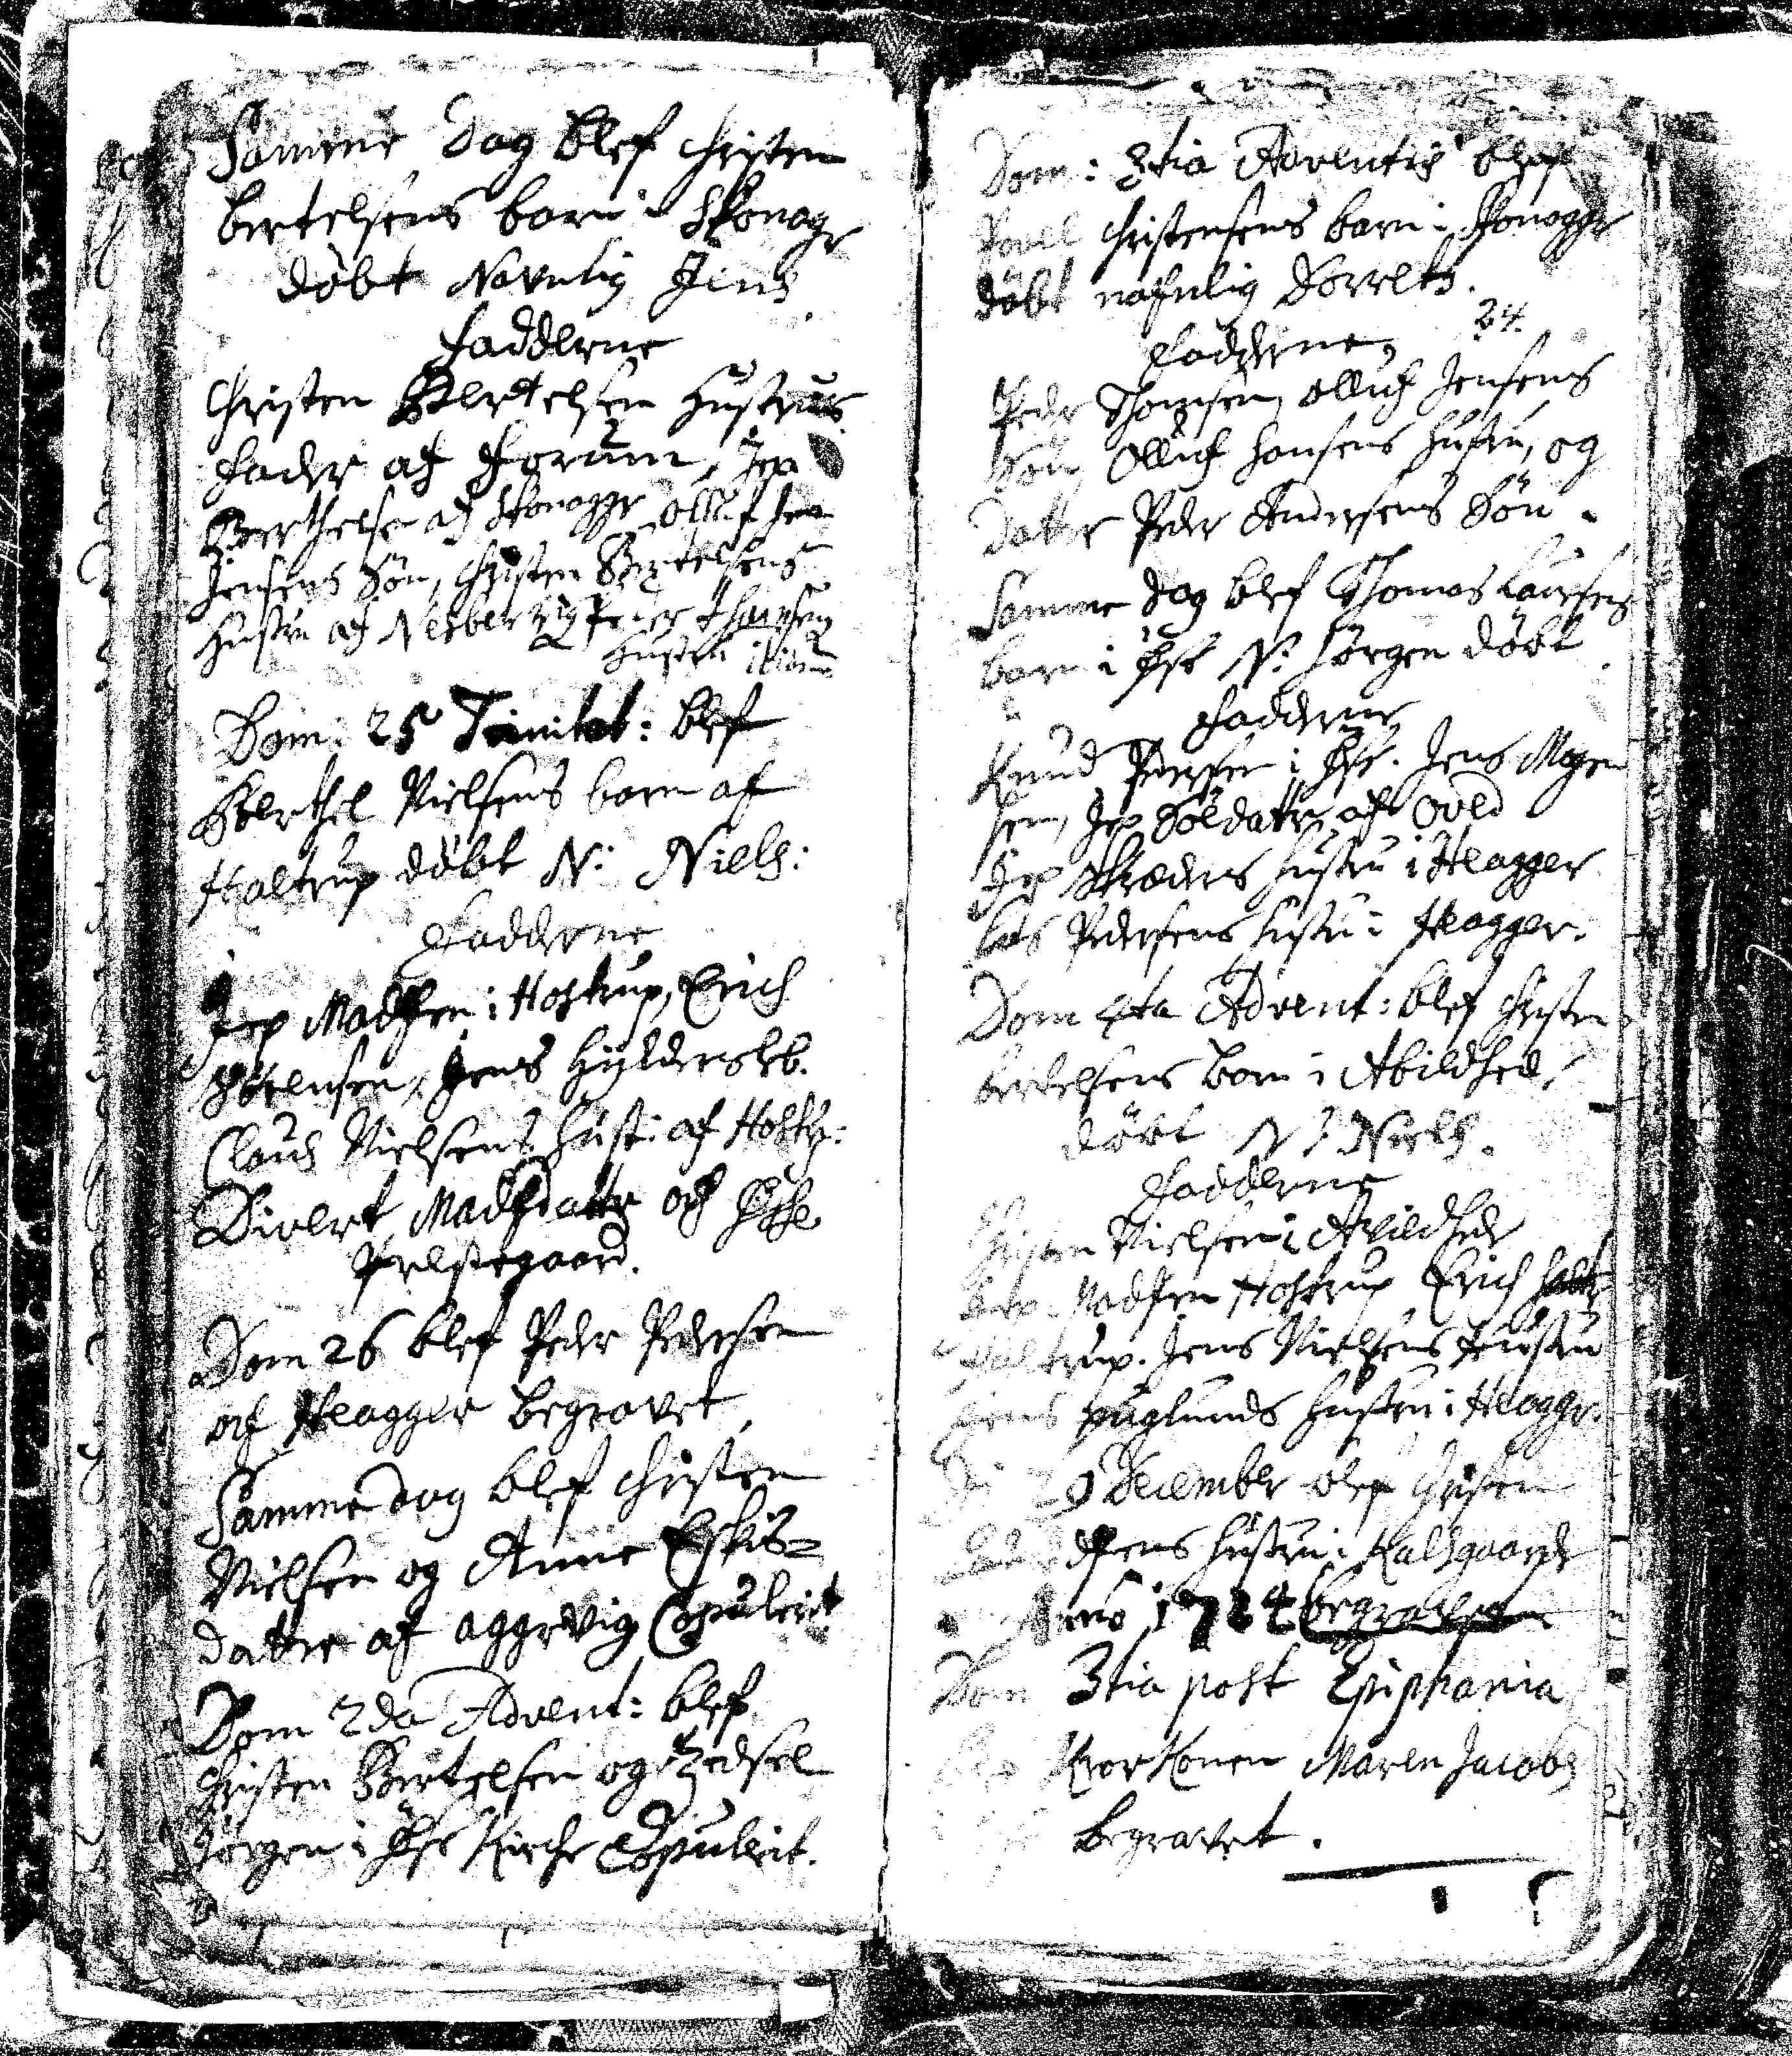 Samme Dag blef Christen
Bertelsens barn i Skonage
döbt Navnlig Jens
Fadderne
Christen Bertelsen Hustrues
Fader af Forum, Jep
Berthelsen af Skonagger Olluf
Jensens Sön, Christen Bertelsens
Hustru af Nesberig Peder Thomsens
Hustru i
Dom: 25 Trinitat: blef
Berthel Nielsens barn af
Haltrup döbt N: Niels:
Fadderne
Jep Madsen i Hostrup, Erich
Sörensen, Jens
Clauds Nielsens Hust: af Hostr:
Sivert Madsdatter af
Prestegaard.
Dom 26 blef Peder Pedersen
af Heagger begravet
Samme Dag blef Christen
Nielsen og Anne Eskis-
datter af aggervig Copuleret
Dom 2da Advent: blef
Christen Bertelsen og Zidsel
Jörgen i Kirche Copulerit.
Dom: 3tia Adventus blef
Povel Christensens barn i Skonagger
döbt nafnlig Dorreth.
24.
Fadderne
Peder Thomsen, Olluf Jensens
Sön Olluf Hansens Hustru, og
Datter Peder Andersens Sön.
Samme dag blef Thomas Laursens
barn i N: Jörgen döbt
Fadderne
Knud i Jens Mogen
sen, Jep Soldatter af Oved
Jep Skræders Hustru i Heagger
Las Pedersens Hustru i Heagger.
Dom 4ta Advent: blef Christen
Bertelsens Barn i Abildhed,
döbt N: Niels.
Fadderne
Christen Nielsen i Abildhede
Jep Madsen Hostrup Erich
Haltrup. Jens Nielsens Hustru
Jens Huglunds Hustru i Heagger.
29 December blef Christen
Hustru i Kalsgaarde
Anno 1724 begravet
Dom 3tia post Epiphania
blef Konen Maren Jacobs
begravet.